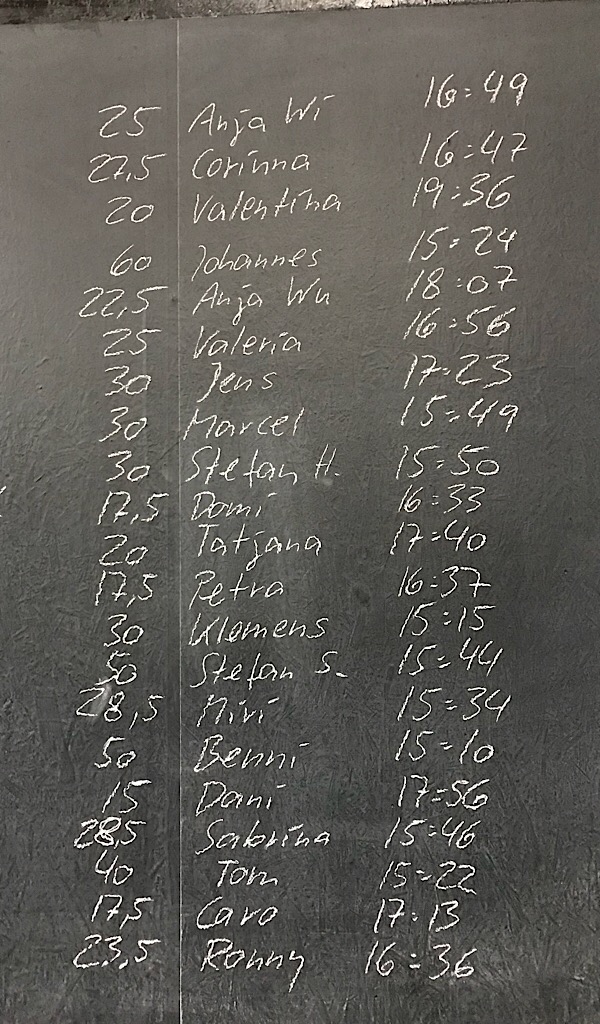 25 Anja Wi 16:49
27,5 Corinna 16:47
20 Valentina 19:36
60 Johannes 15:24
22,5 Anja Wu 18:07
25 Valeria 16:56
30 Jens 17:23
30 Marcel 15:49
30 Stefan H. 15:50
17,5 Domi 16:33
20 Tatjana 17:40
17,5 Petra 16:37
30 Klemens 15:15
50 Stefan S. 15:44
28,5 Miri 15:34
50 Benni 15:10
15 Dani 17:56
28,5 Sabrina 15:46
40 Tom 15:22
17,5 Caro 17:13
23,5 Ronny 16:36